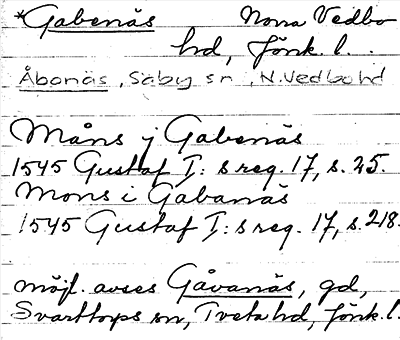 *Gabenäs Norra Vedbo
hd, Jönk. l.
Åbonäs, Säby sn, N.Vedbo hd
Måns j Gabenäs
1545 Gustaf I: s reg. 17, s. 25.
Mons i Gabanäs
1545 Gustaf I: s reg. 17, s. 218.
möjl. avses Gåvanäs, gd,
Svarttorps sn, Tveta hd, Jönk. l.